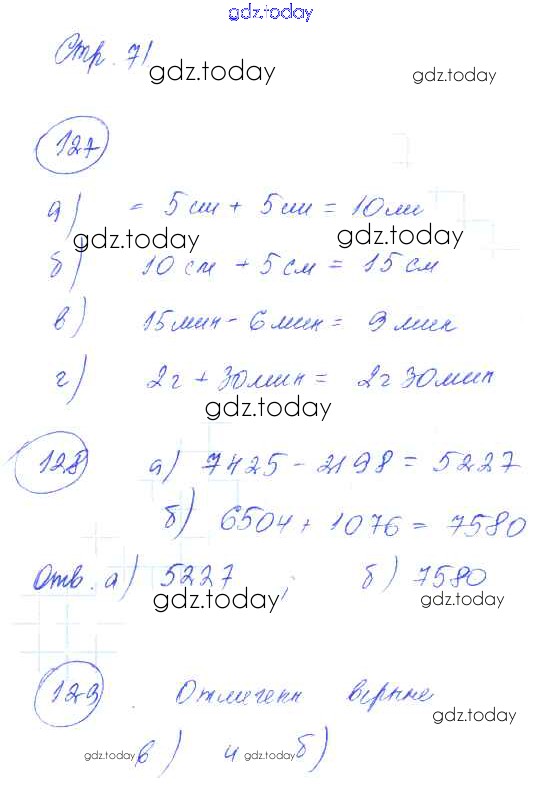 gdz.today
Стр. 71
gdz.today
gdz.today
127
а) = 5 см + 5 см = 10 см
gdz.today
gdz.today
б) 10 см + 5 см = 15 см
в) 15 мин - 6 мин = 9 мин
г) 2 г + 30 мин = 2 г 30 мин
gdz.today
128
а) 7425 - 2198 = 5227
б) 6504 + 1076 = 7580
Отв. а) 5227 ; б) 7580
gdz.today
gdz.today
129. Отмечены верные
gdz.today
в) и б)
gdz.today
gdz.today